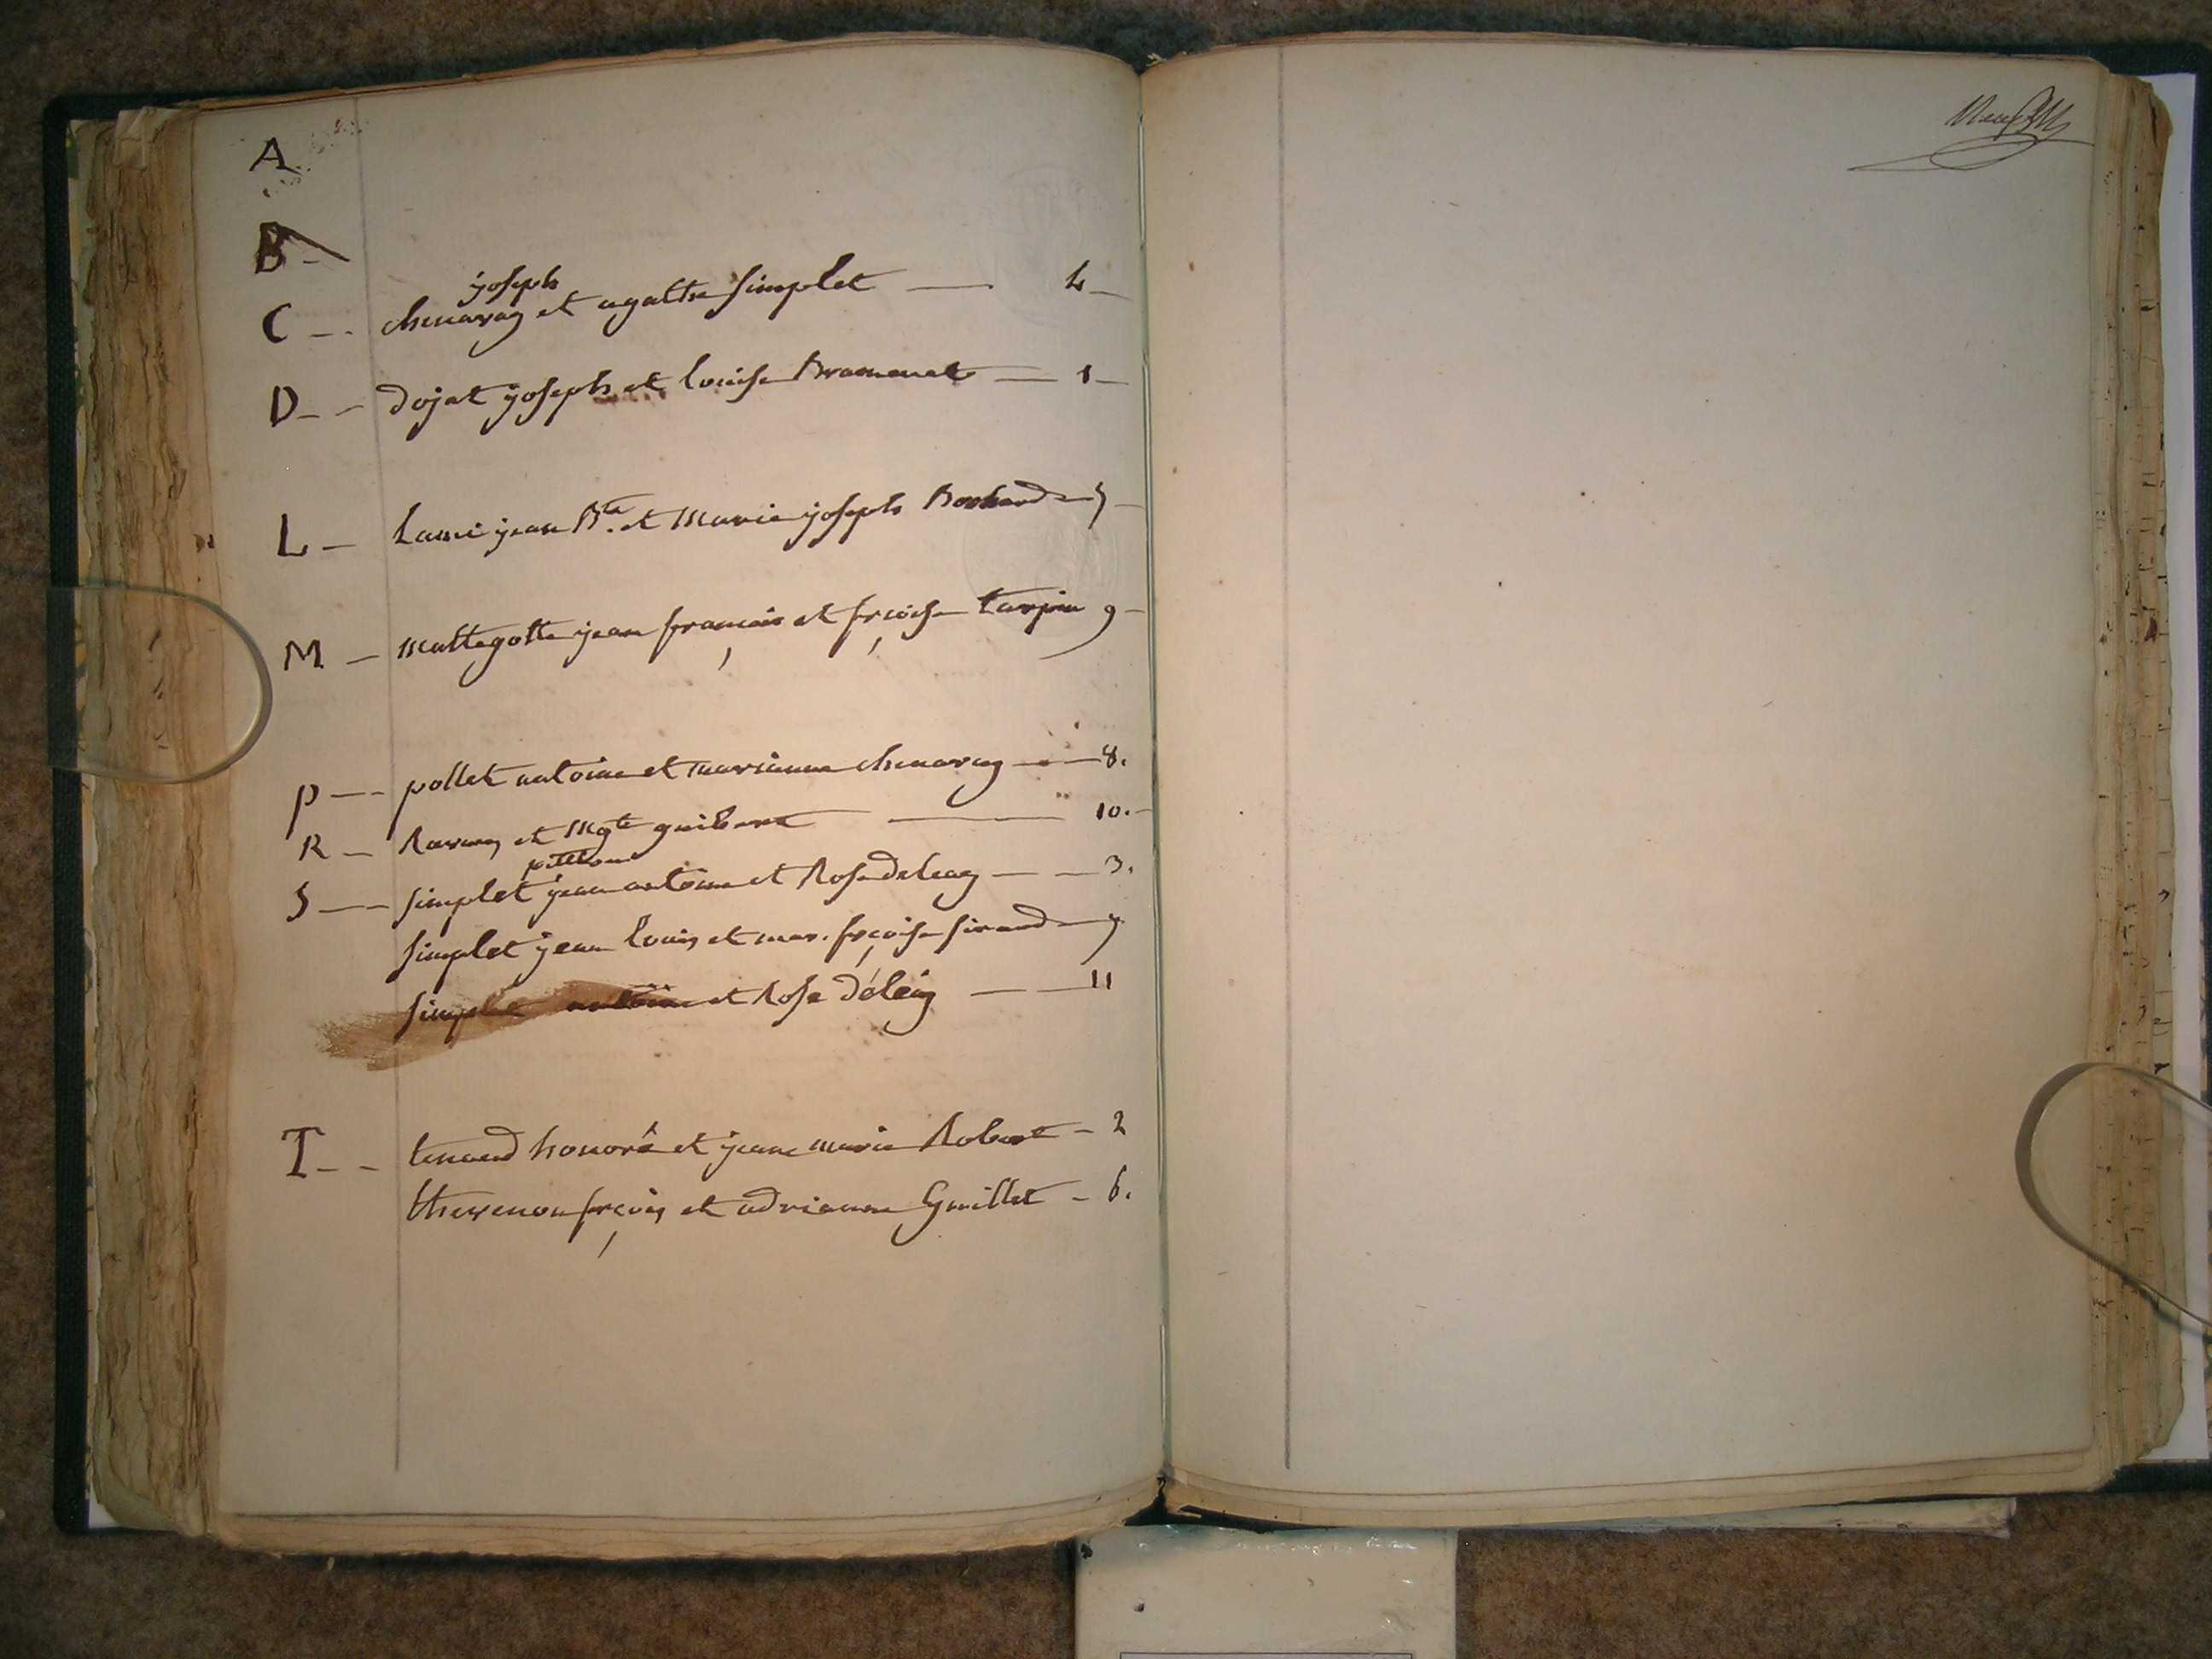 A
B -
joseph
C -- chenavas et agathe simplet — 4 -
D -- dojat joseph et louise Brameret — 1 -
L - Lamé jean Bte. et Marie joseph Bouhard - 5 -
M - Mattegotte jean françois et frçoise turpin 9 -
P -- pollet antoine et marianne chenavas — 8.
R - Ravas et Mgte guibert — 10. -
pettion
S -- simplet jean antoine et Rose deleas -- 3.
simplet jean louis et mar. frçoise siraud - 7
simplet antoine et Rose déléas -- 11
T -- tenaud honoré et jeane marie Robert - 2
thevenon frçois et adrianne Guillet - 6.